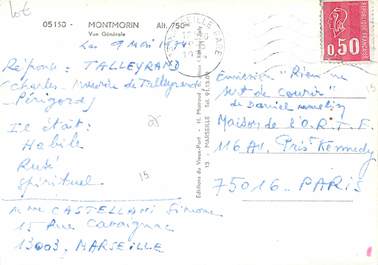 Lot
05150 - MONTMORIN Alt. 750
Vue Générale
Le 9 Mai 197
Réponse: TALLEYRAND
Charles-Maurice de Talleyrand
Périgord)
Il était:
Habile
Rusé
Spirituel
15
Mme CASTELLANI Simone
15 Rue
13003, MARSEILLE
Editions du Vieux-Port - H.
13 - MARSEILLE Tél.
GARE
0,50
Emission "Rien ne
sert de courir"
de Daniel
Maison de l'O.R.T.F.
116 Av. Prés Kennedy
75016 - PARIS
15